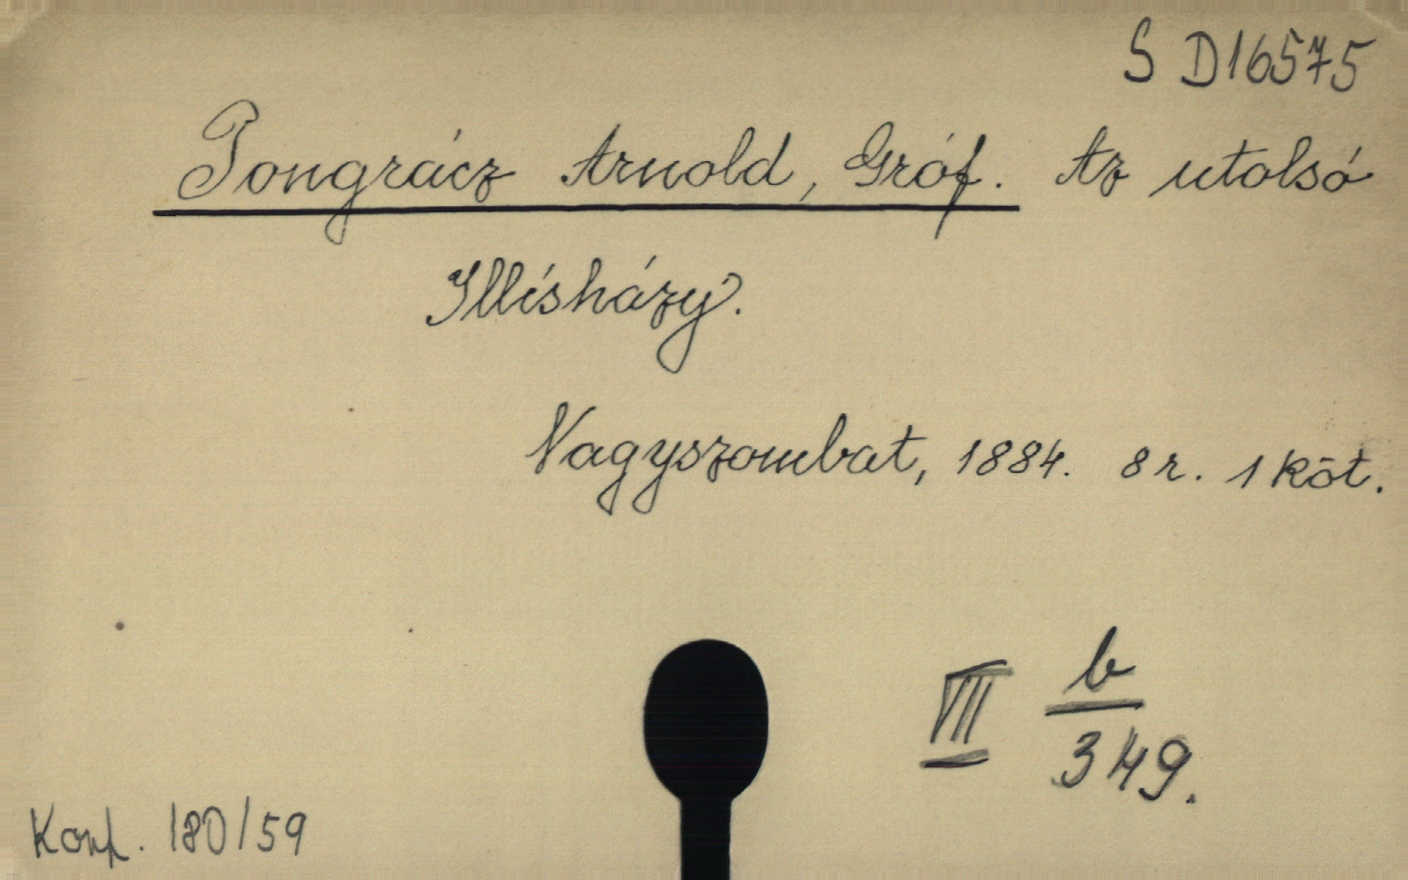 S D16575
Pongrácz Arnold, Gróf. Az utolsó
Illísházy.
Nagyszombat, 1884. 8 r. 1 köt.
VII b
349.
Konf. 180/59